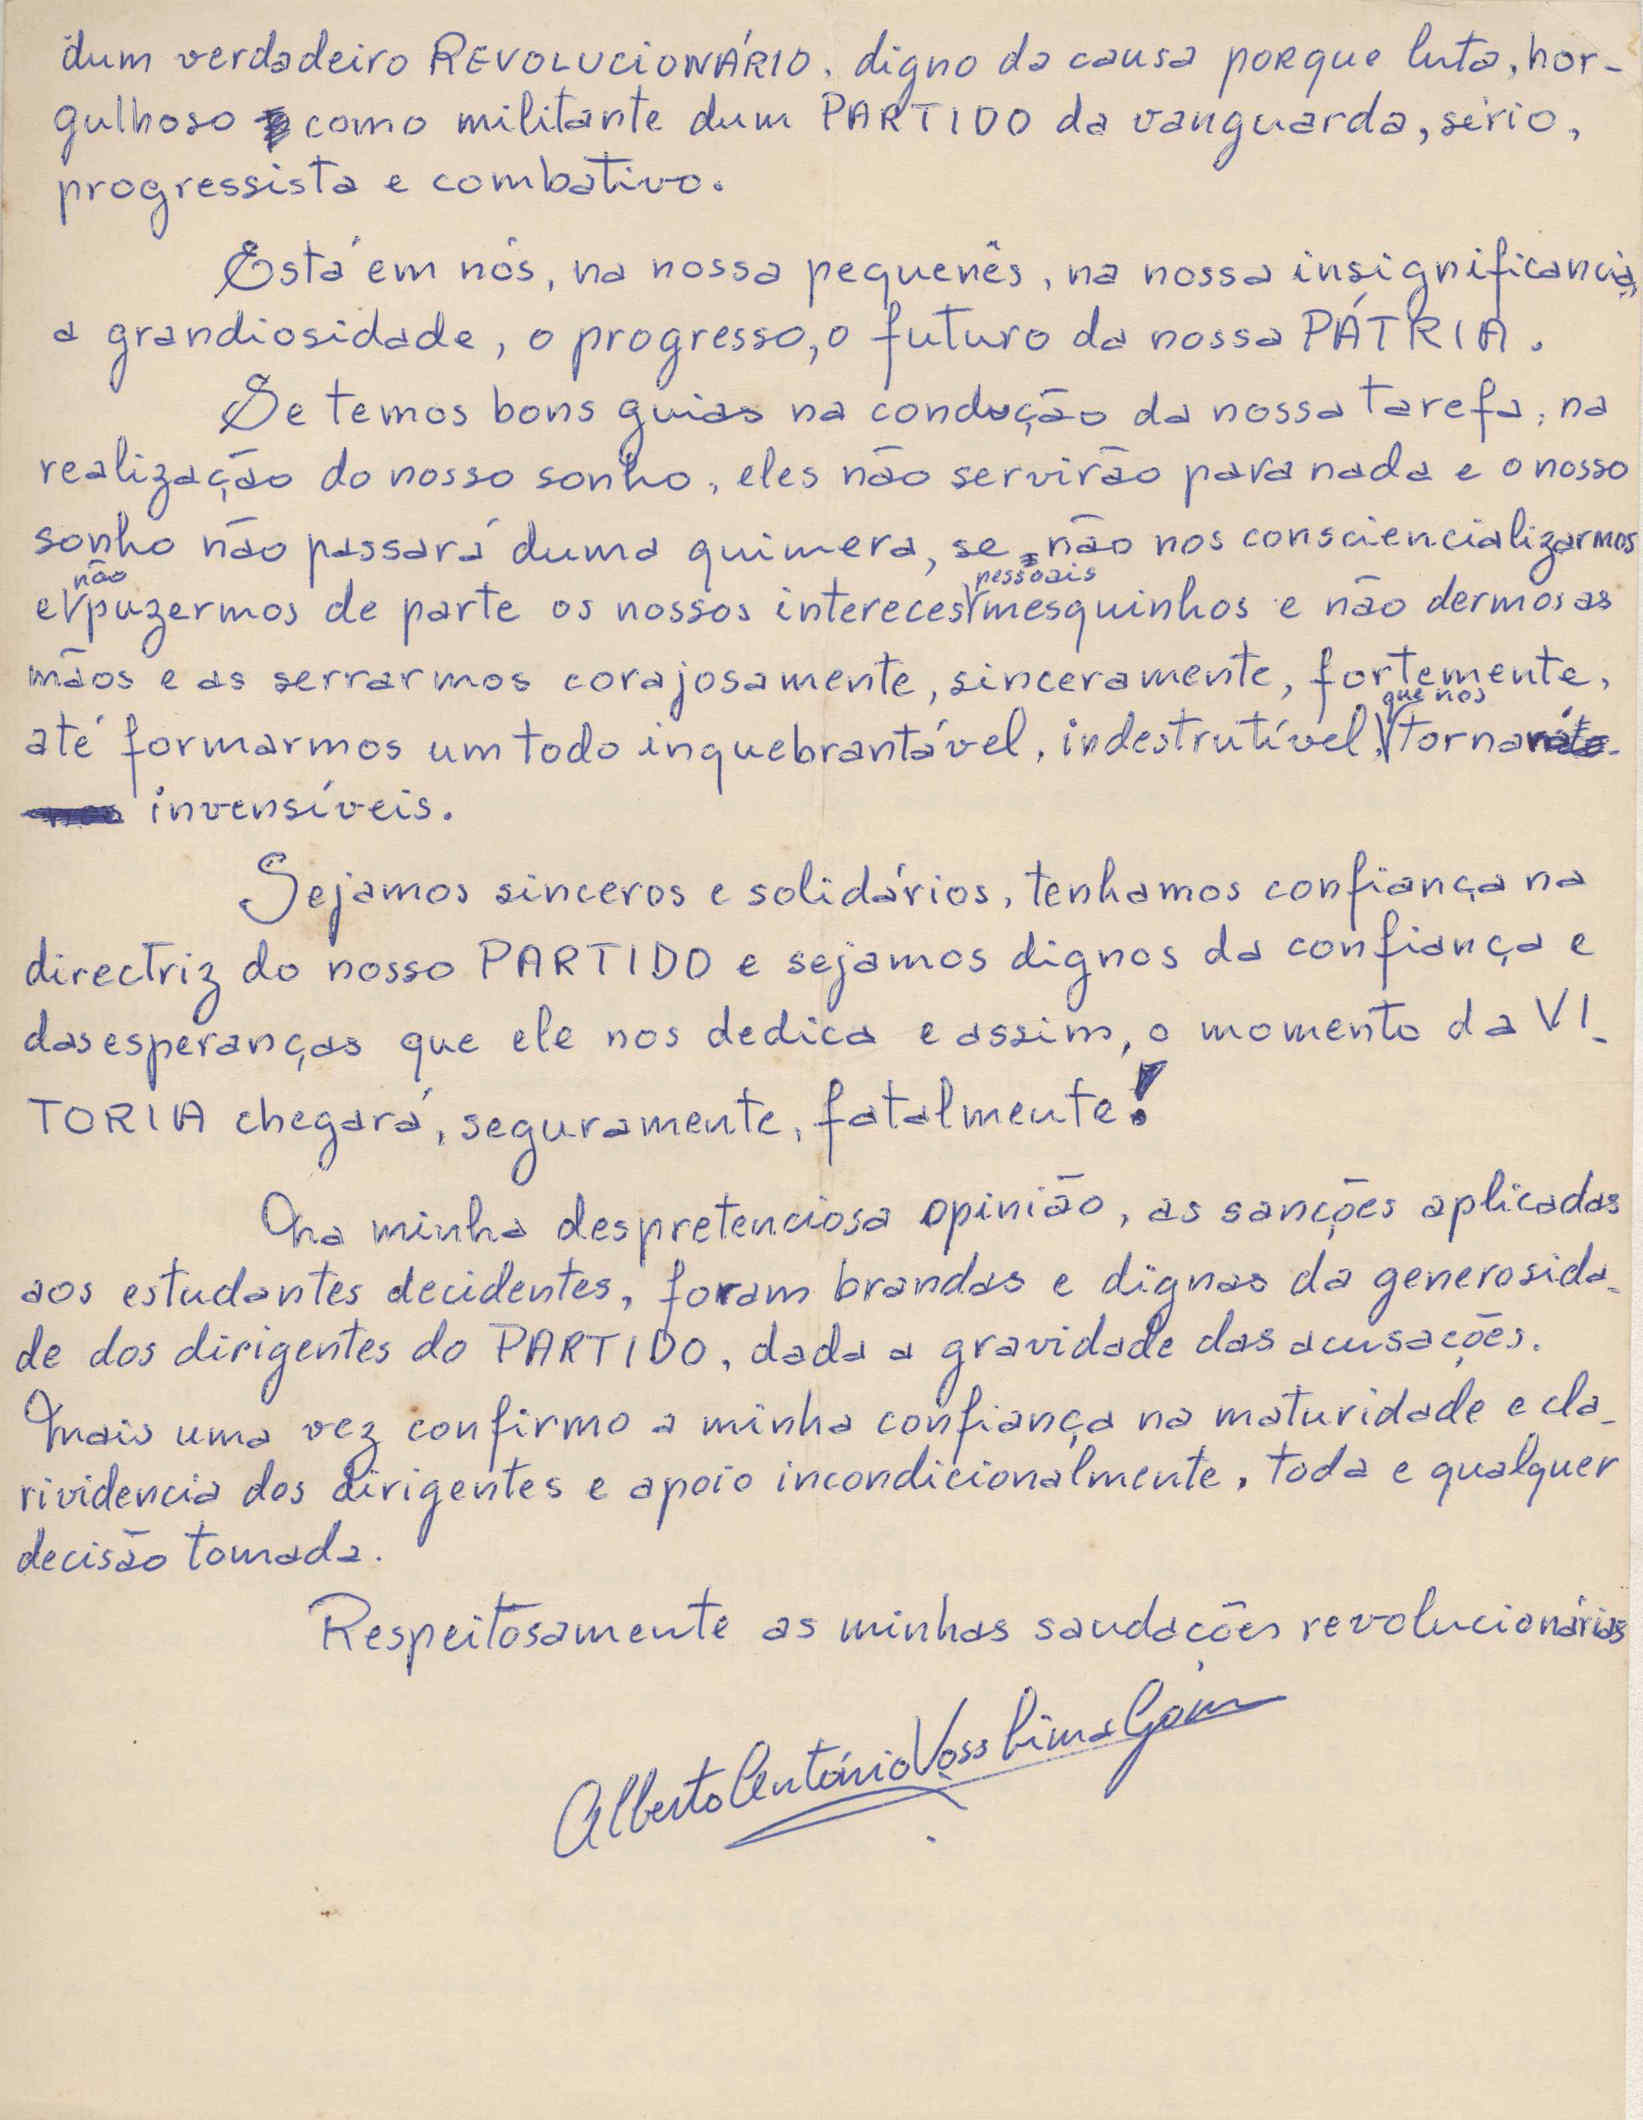 dum verdadeiro REVOLUCIONÁRIO, digno da causa porque luta, hor-
gulhoso como militante dum PARTIDO da vanguarda, sério,
progressista e combativo.
Está em nós, na nossa pequenês, na nossa insignificancia,
a grandiosidade, o progresso, o futuro da nossa PÁTRIA.
Se temos bons guias na condução da nossa tarefa, na
realização do nosso sonho, eles não servirão para nada e o nosso
sonho não passará duma quimera, se não nos consciencializarmos
e não puzermos de parte os nossos intereces pessoais mesquinhos e não dermos as
mãos e as serrarmos corajosamente, sinceramente, fortemente,
até formarmos um todo inquebrantável, indestrutível, que nos torna
invensíveis.
Sejamos sinceros e solidários, tenhamos confiança na
directriz do nosso PARTIDO e sejamos dignos da confiança e
das esperanças que ele nos dedica e assim, o momento da VI-
TORIA chegará, seguramente, fatalmente!
Na minha despretenciosa opinião, as sanções aplicadas
aos estudantes decidentes, foram brandas e dignas da generosida-
de dos dirigentes do PARTIDO, dada a gravidade das acusações.
Mais uma vez confirmo a minha confiança na maturidade e cla-
rividencia dos dirigentes e apoio incondicionalmente, toda e qualquer
decisão tomada.
Respeitosamente as minhas saudações revolucionárias
Alberto António Voss Lima